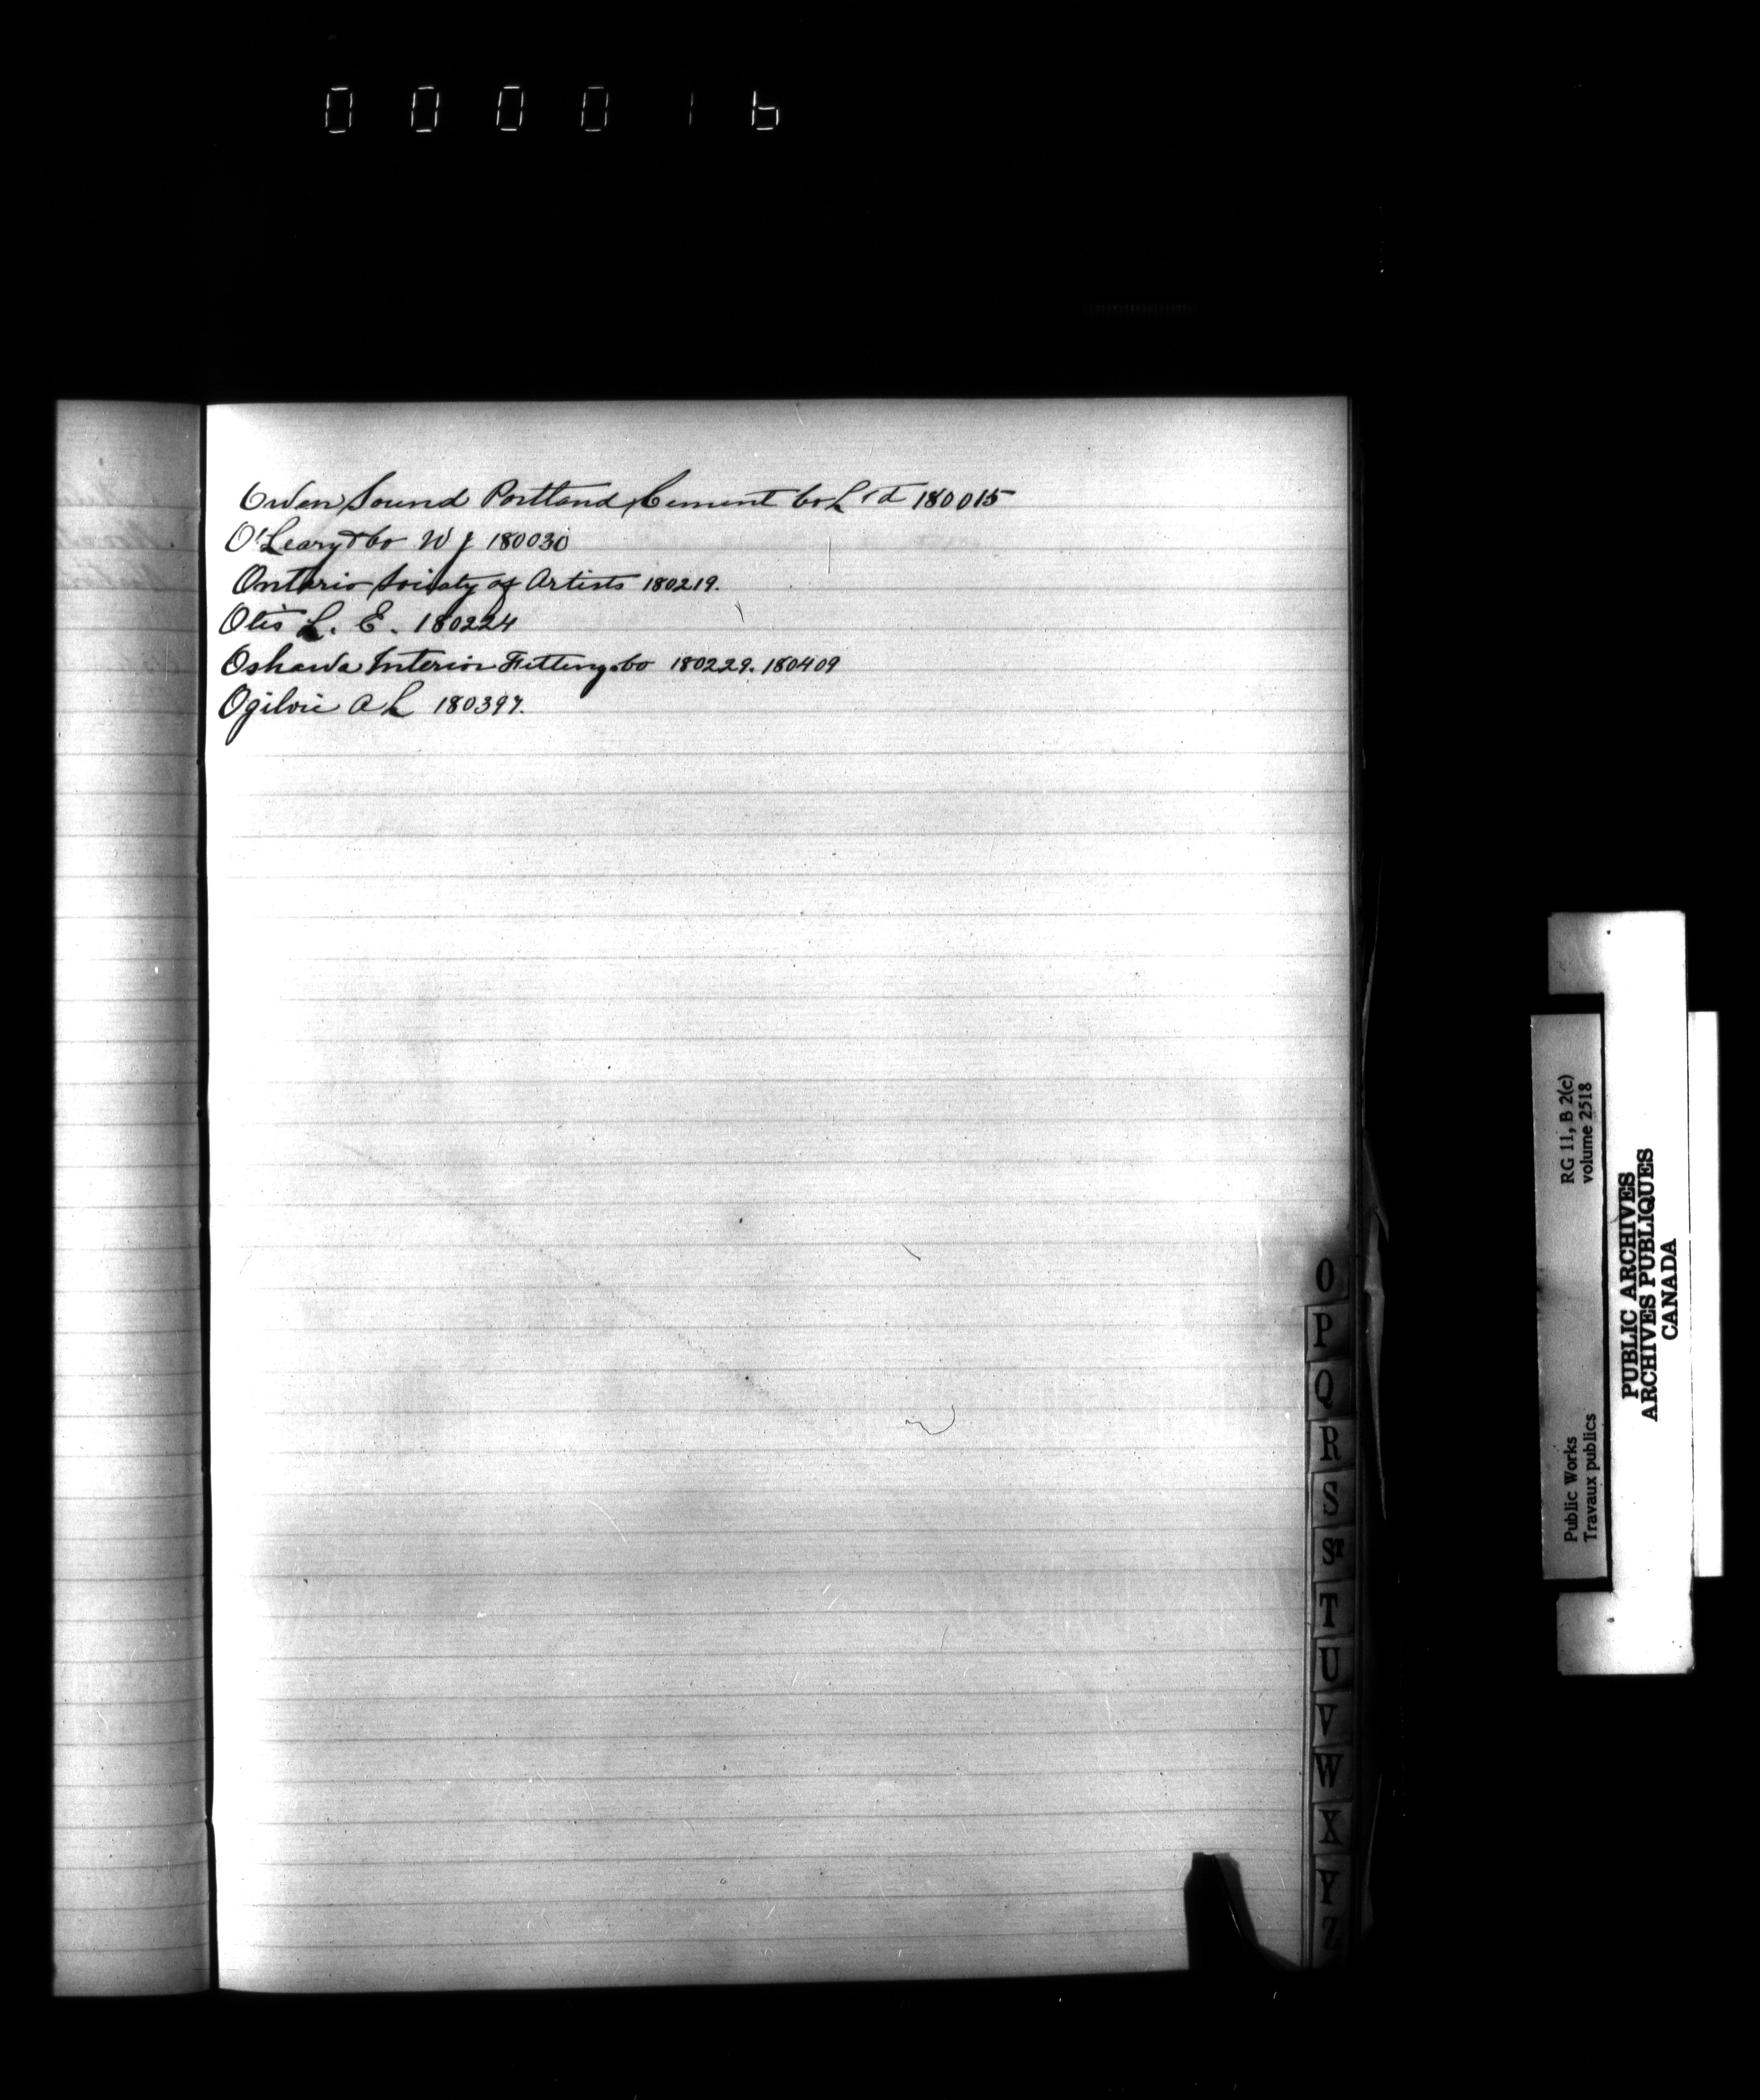 000016
Owen Sound Portland Cement Co L'td 180015
O'Leary & Co W J 180030
Ontario Soiety of Artists 180219.
Otis L. E. 180224
Oshawa Interior Fitting Co 180229. 180409
Ogilvie A L 180397.
O
P
Q
R
S
ST
T
U
V
W
X
Y
Z
RG 11, B 2(c)
volume 2518
Public Works
Travaux publics
PUBLIC ARCHIVES
ARCHIVES PUBLIQUES
CANADA